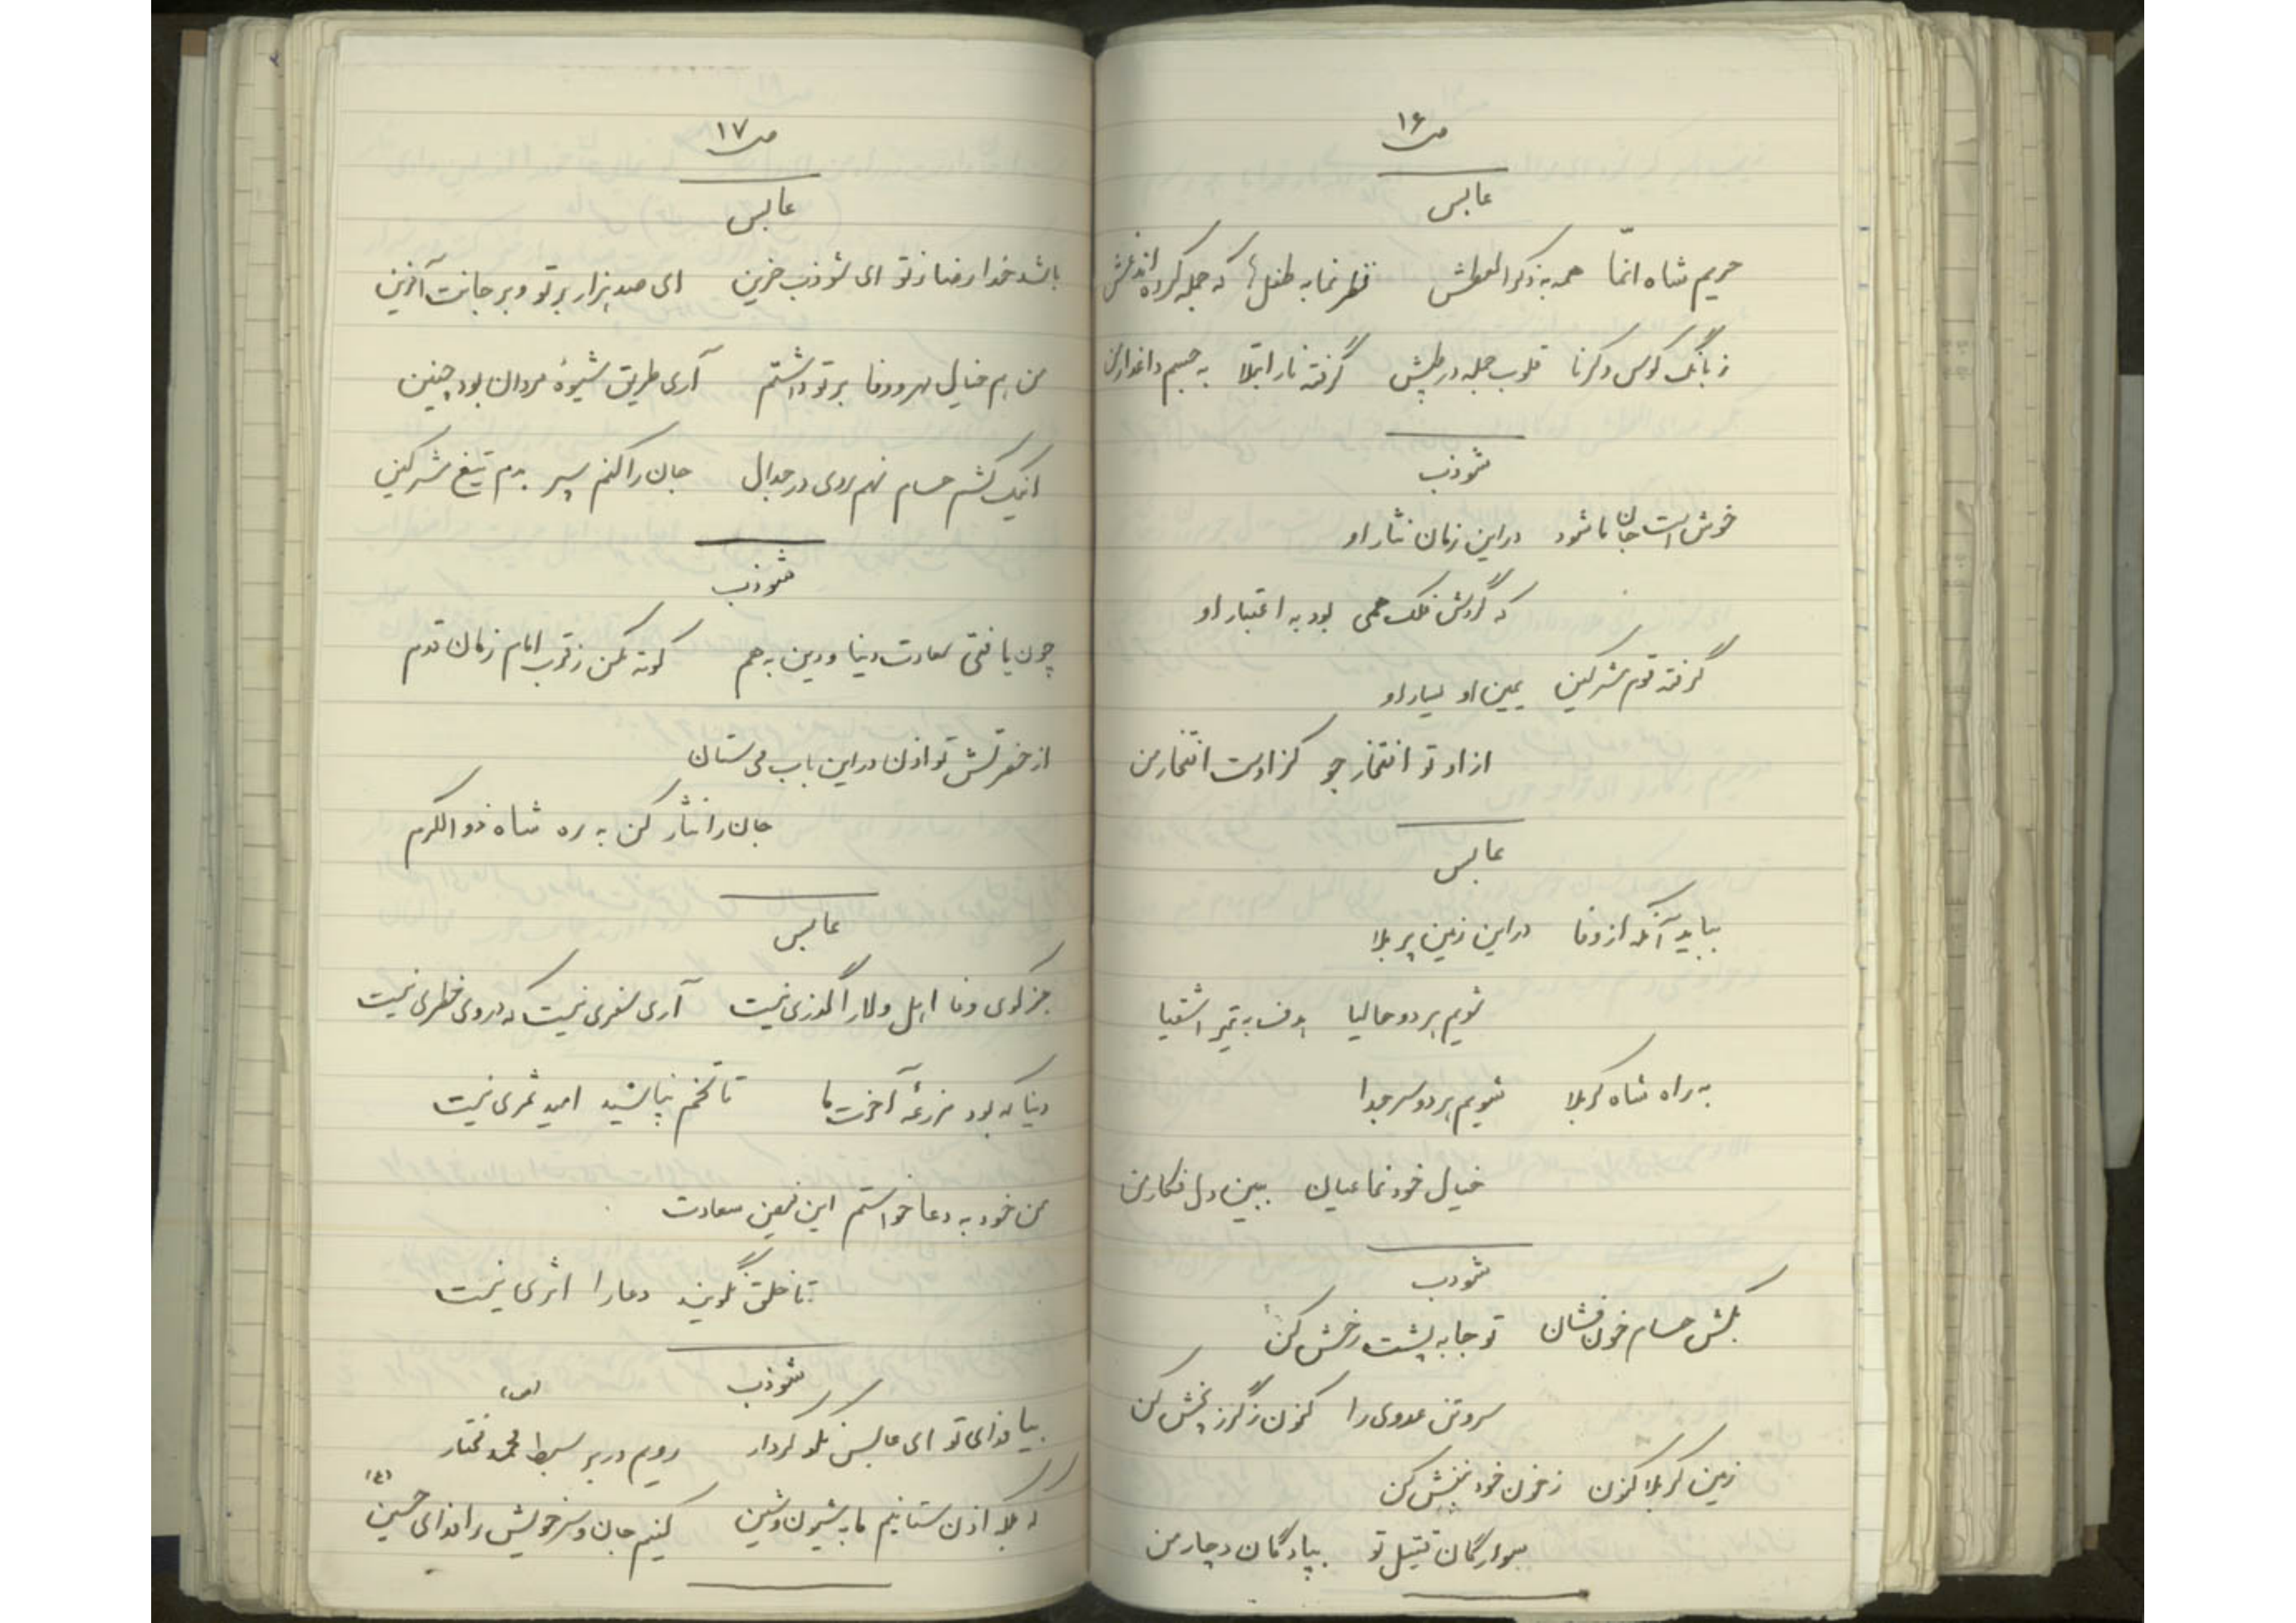 ص ۱۶
عابس
حریم شاه انمّا همه به ذکر العطش نظر نما به طفلها که جمله کرده‌اند غش
ز بانگ کوس و کرنا قلوب جمله در طپش گرفته نار ابتلا به جسم داغدار من
شوذب
خوش است جان ما شود در این زمان نثار او
که گردش فلک همی بود به اعتبار او
گرفته قوم مشرکین یمین او یسار او
از او تو افتخار جو کز اوست افتخار من
عابس
بباید آنکه از وفا در این زمین پر بلا
شویم هر دو حالیا هدف به تیر اشقیا
به راه شاه کربلا شویم هر دو سر جدا
خیال خود نما عیان ببین دل فکار من
شوذب
بکش حسام خون فشان تو جا به پشت رخش کن
سر و تن عدوی را کنون ز گرز پخش کن
زمین کربلا کنون ز خون خود بنفش کن
سوارگان قتیل تو پیادگان دچار من
ص ۱۷
عابس
باشد خدا رضا ز تو ای شوذب حزین ای صد هزار بر تو و بر جانت آفرین
من هم خیال مهر و وفا بر تو داشتم آری طریق شیوهٔ مردان بود چنین
اینک کشم حسام نهم روی در جدال جان را کنم سپر بدم تیغ مشرکین
شوذب
چون یافتی سعادت دنیا و دین به هم کوته مکن ز قرب امام زمان قدم
از حضرتش تو اذن در این باب می‌ستان
جان را نثار کن به ره شاه ذوالکرم
عابس
جز کوی وفا اهل ولا را گذری نیست آری سفری نیست که در وی خطری نیست
دنیا که بود مزرعهٔ آخرت ما تا تخم نپاشید امید ثمری نیست
من خود به دعا خواستم این فیض سعادت
تا خلق نگویند دعا را اثری نیست
شوذب
بیا فدای تو ای عابس نکو کردار رویم در بر سبط محمد مختار (ص)
که بلکه اذن ستانیم ما به شیون و شین کنیم جان و سر خویش را فدای حسین (ع)